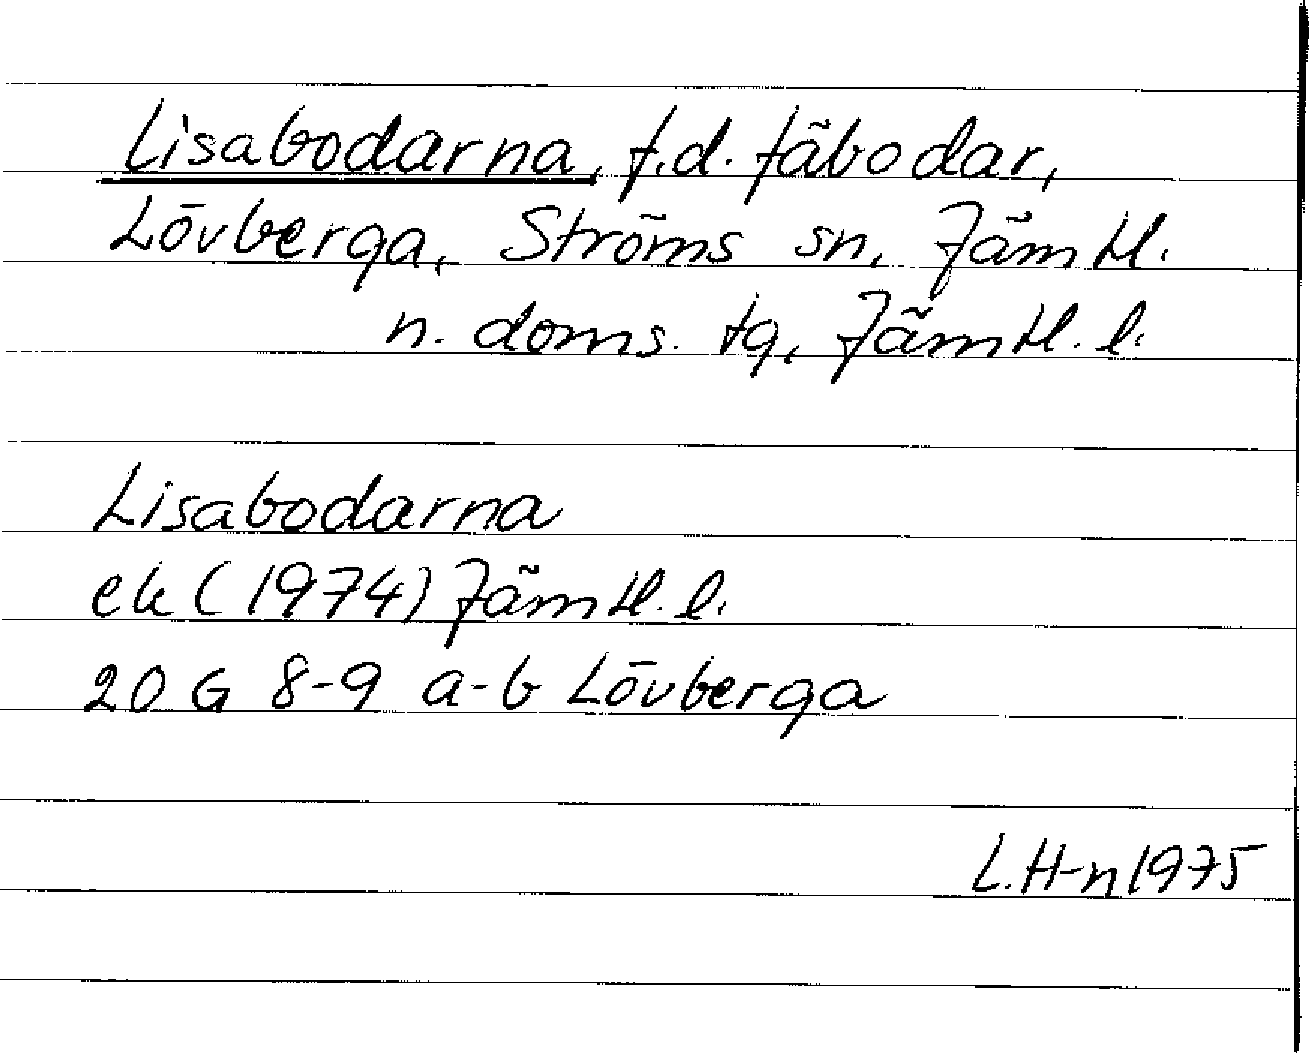 Lisabodarna, f.d. fäbodar,
Lövberga, Ströms sn, Jämtl.
n. doms. tg, Jämtl. l.
Lisabodarna
ek (1974) Jämtl. l.
20 G 8-9 a-b Lövberga
L. H-n 1975